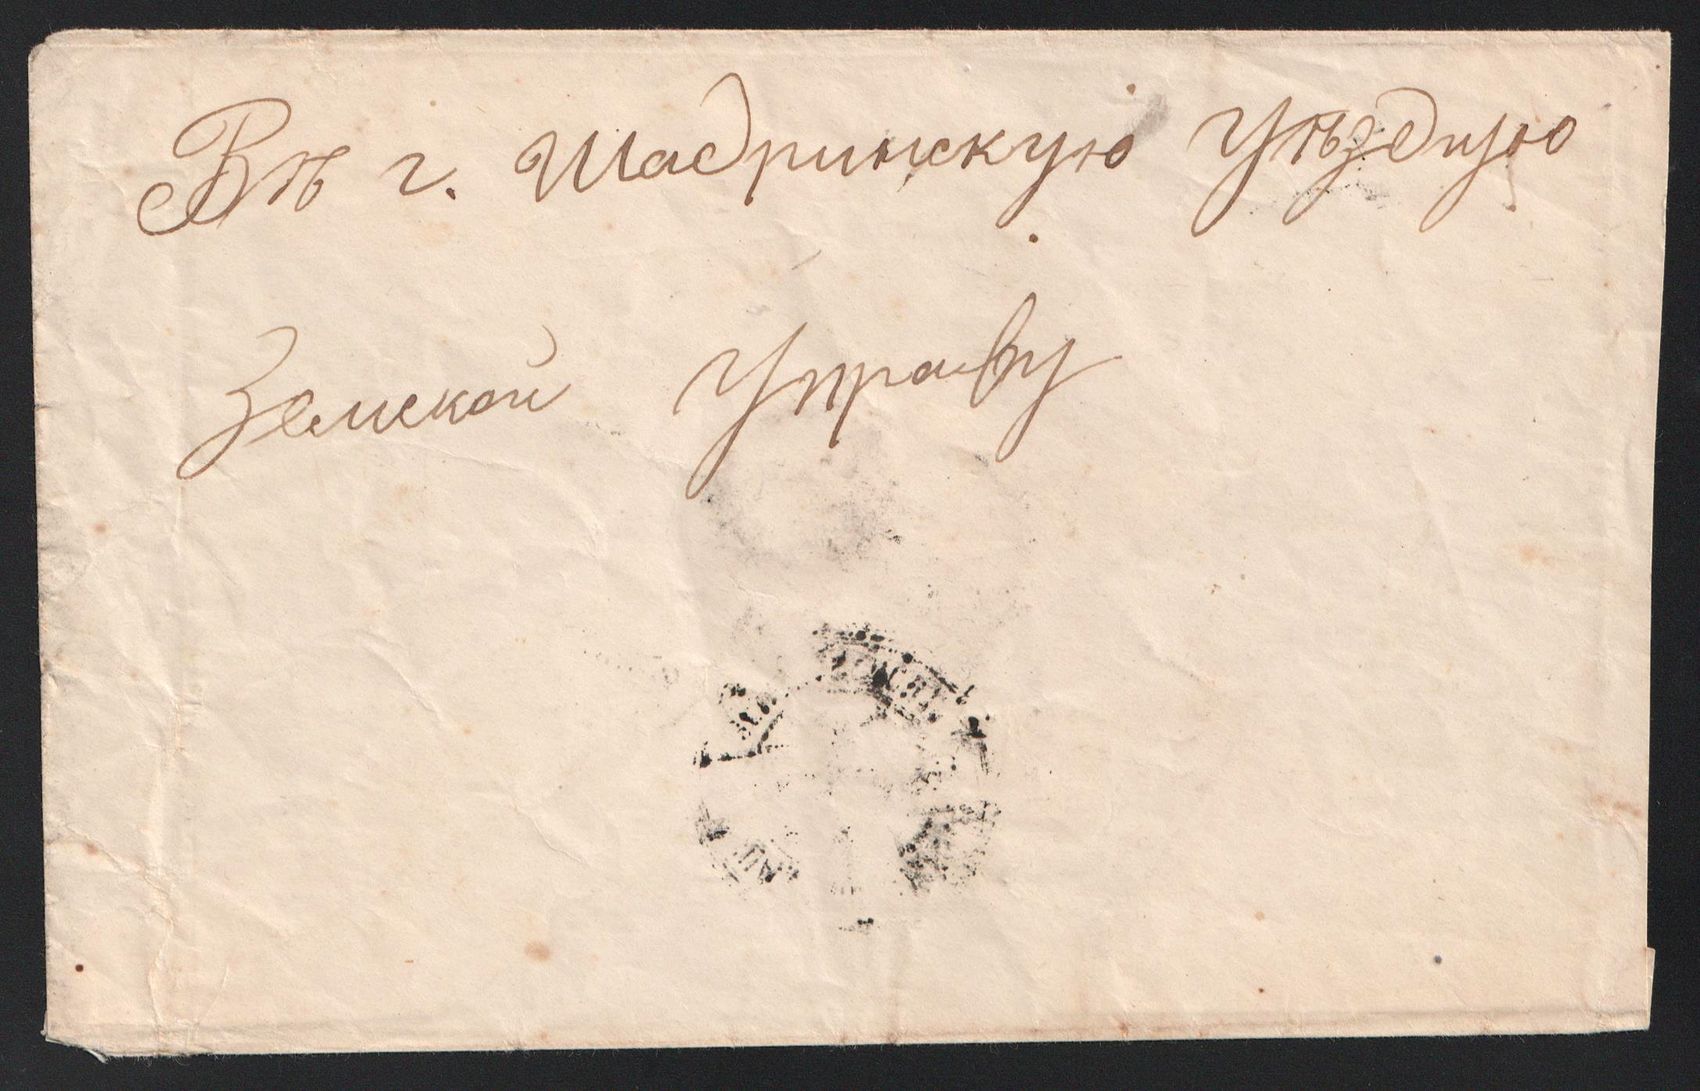 Въ г. Шадринскую Уѣздную
Земской Управу